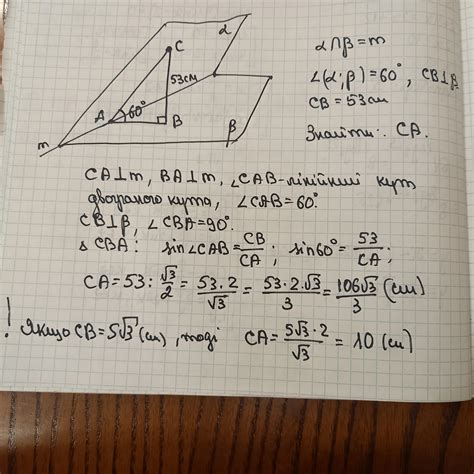 α
C
53см
A 60°
B
m
β
α∩β=m
∠(α;β)=60°, CB⊥β
CB=53см
Знайти: CA.
CA⊥m, BA⊥m, ∠CAB-лінійний кут
двогранного кута, ∠CAB=60°.
CB⊥β, ∠CBA=90°.
△CBA: sin∠CAB=CB/CA; sin60°=53/CA;
CA=53:√3/2=53·2/√3=53·2·√3/3=106√3/3 (см)
! Якщо CB=5√3 (см), тоді CA=5√3·2/√3=10 (см)